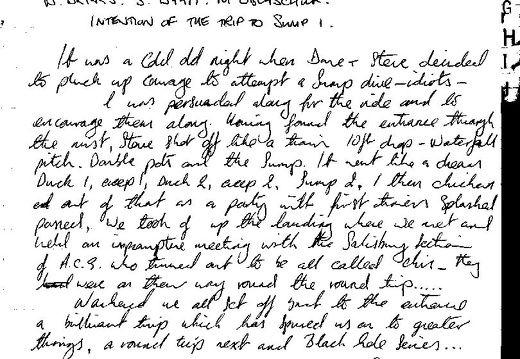 INTENTION OF THE TRIP TO SUMP 1.
It was a cold old night when Dave + Steve decided
to pluck up courage to attempt a Sump dive - idiots -
I was persuaded along for the ride and to
encourage them along. Having found the entrance through
the mist, Steve shot off like a train 10ft drop - Waterfall
pitch. Double pots and the Sump. It went like a dream
Duck 1, creep 1, Duck 2, creep 2, Sump 2, I then chicken
ed out of that as a party with first timers splashed
passed, We took off up the landing where we met and
held an impromptu meeting with the Salisbury Section
of A.C.G. who turned out to be all called Chris - they
were on their way round the round trip.....
we all set off back to the entrance
a brilliant trip which has spured us on to greater
things, a round trip next and Black hole Series...